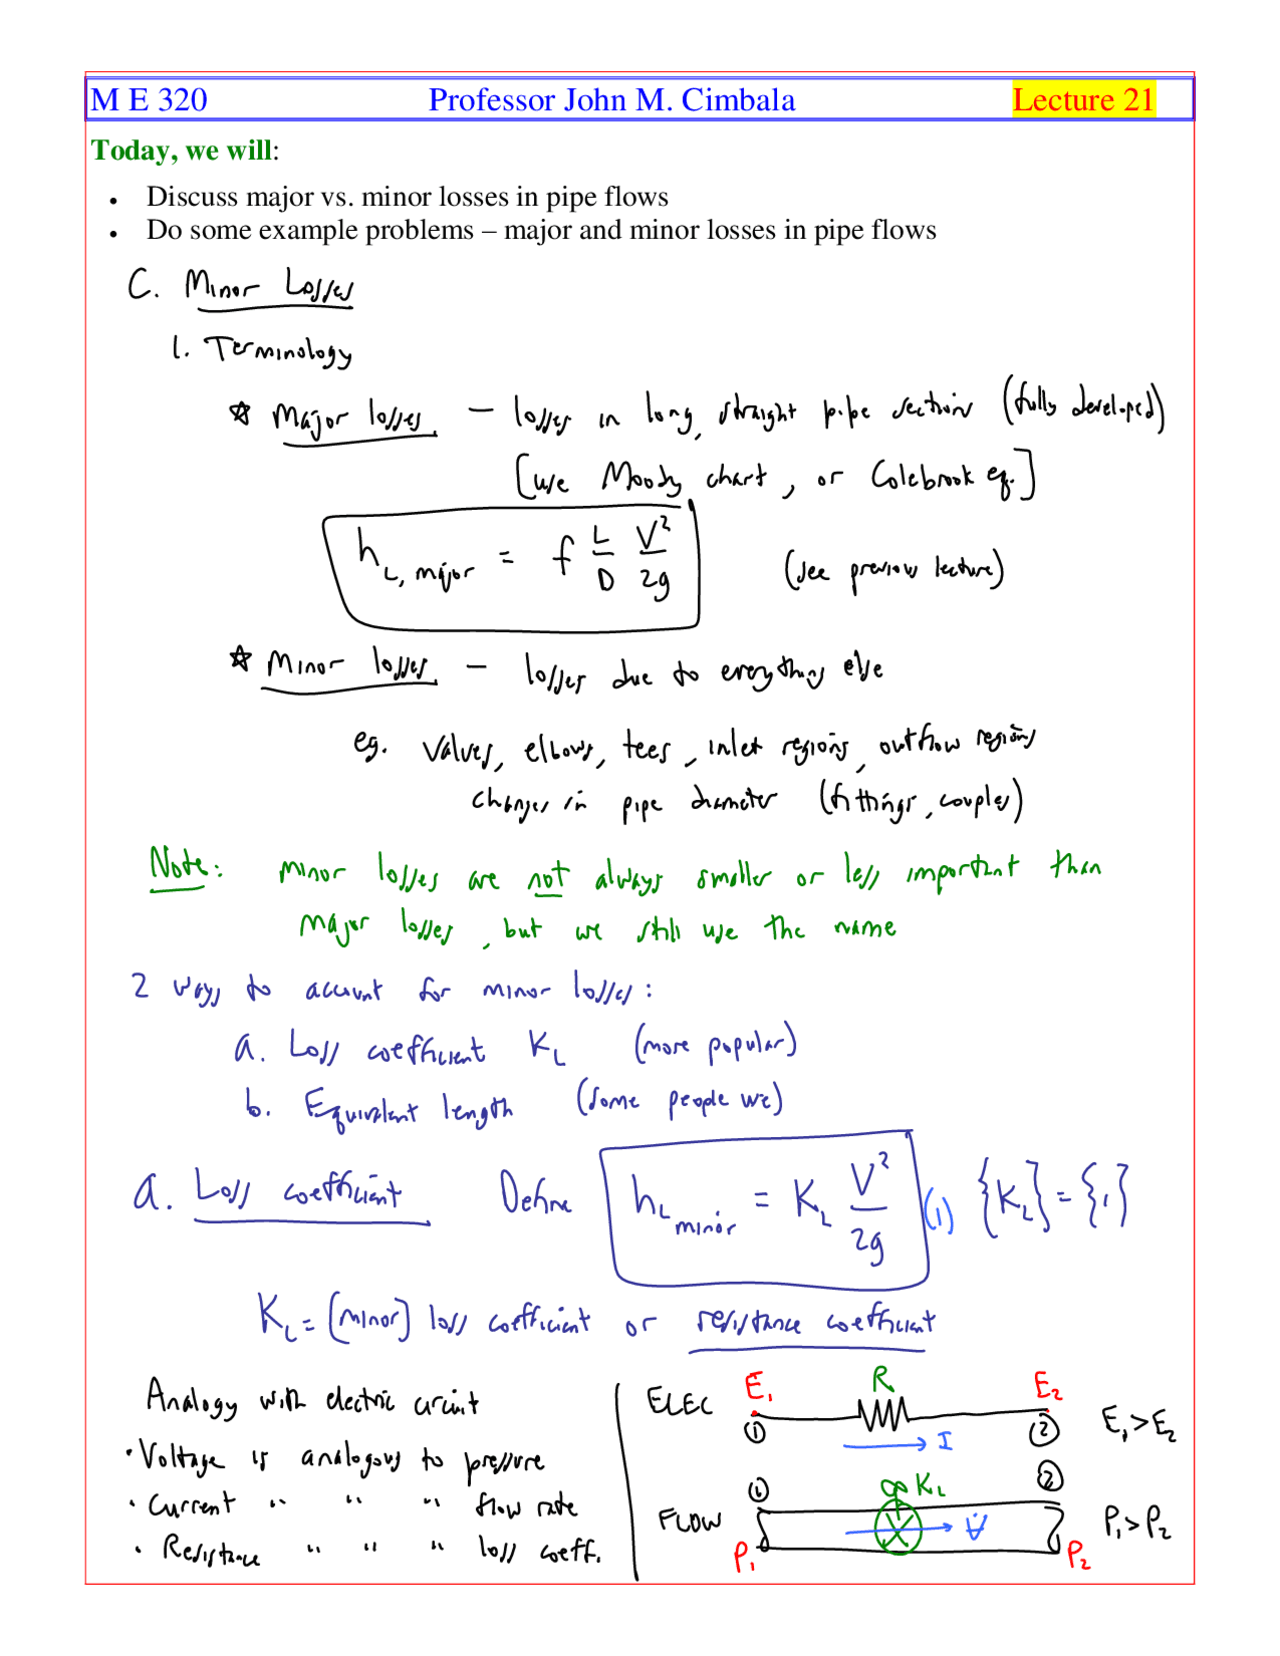 M E 320 Professor John M. Cimbala Lecture 21
Today, we will:
• Discuss major vs. minor losses in pipe flows
• Do some example problems – major and minor losses in pipe flows
C. Minor Losses
1. Terminology
☆ Major losses – losses in long, straight pipe sections (fully developed)
[use Moody chart, or Colebrook eq.]
h_L, major = f L/D V²/2g (see previous lecture)
☆ Minor losses – losses due to everything else
eg. Valves, elbows, tees, inlet regions, outflow regions
changes in pipe diameter (fittings, couples)
Note: Minor losses are not always smaller or less important than
major losses, but we still use the name
2 ways to account for minor losses:
a. Loss coefficient K_L (more popular)
b. Equivalent length (some people use)
a. Loss coefficient Define h_L minor = K_L V²/2g (1) {K_L} = {1}
K_L = (minor) loss coefficient or resistance coefficient
Analogy with electric circuit
• Voltage is analogous to pressure
• Current " " " flow rate
• Resistance " " " loss coeff.
ELEC E₁ R E₂
① I ② E₁ > E₂
① K_L ②
FLOW V̇ P₁ > P₂
P₁ P₂